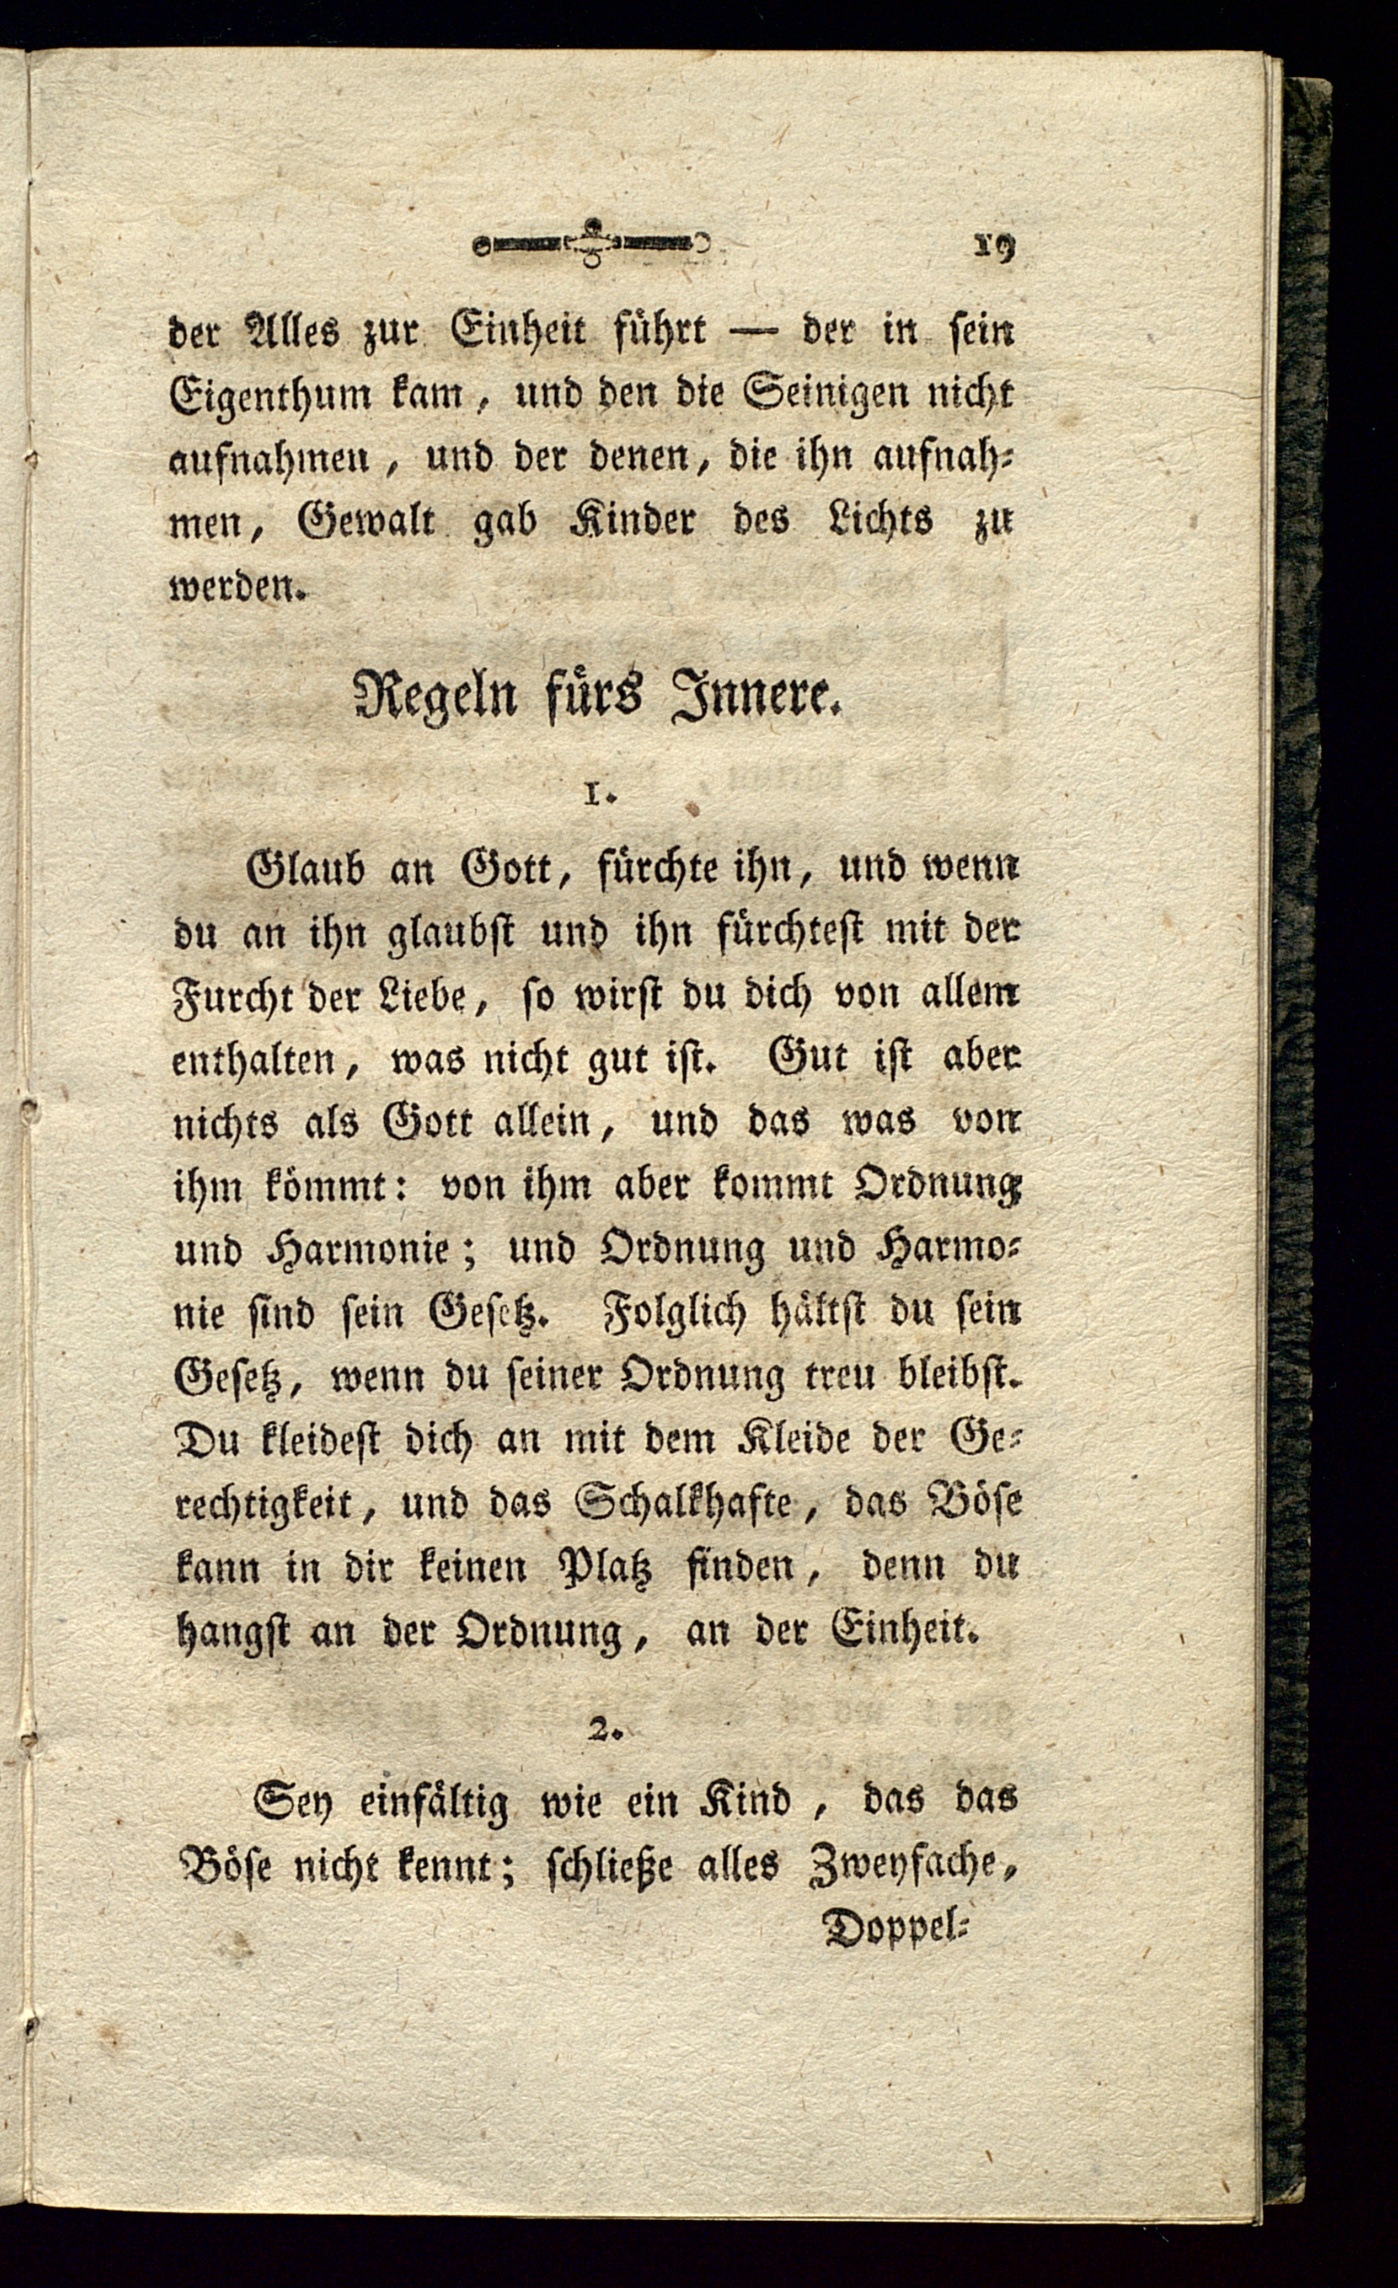 19
der Alles zur Einheit führt — der in sein
Eigenthum kam, und den die Seinigen nicht
aufnahmen, und der denen, die ihn aufnah-
men, Gewalt gab Kinder des Lichts zu
werden.
Regeln fürs Innere.
1.
Glaub an Gott, fürchte ihn, und wenn
du an ihn glaubst und ihn fürchtest mit der
Furcht der Liebe, so wirst du dich von allem
enthalten, was nicht gut ist. Gut ist aber
nichts als Gott allein, und das was von
ihm kömmt: von ihm aber kommt Ordnung
und Harmonie; und Ordnung und Harmo-
nie sind sein Gesetz. Folglich hältst du sein
Gesetz, wenn du seiner Ordnung treu bleibst.
Du kleidest dich an mit dem Kleide der Ge-
rechtigkeit, und das Schalkhafte, das Böse
kann in dir keinen Platz finden, denn du
hangst an der Ordnung, an der Einheit.
2.
Sey einfältig wie ein Kind, das das
Böse nicht kennt; schließe alles Zweyfache,
Doppel-